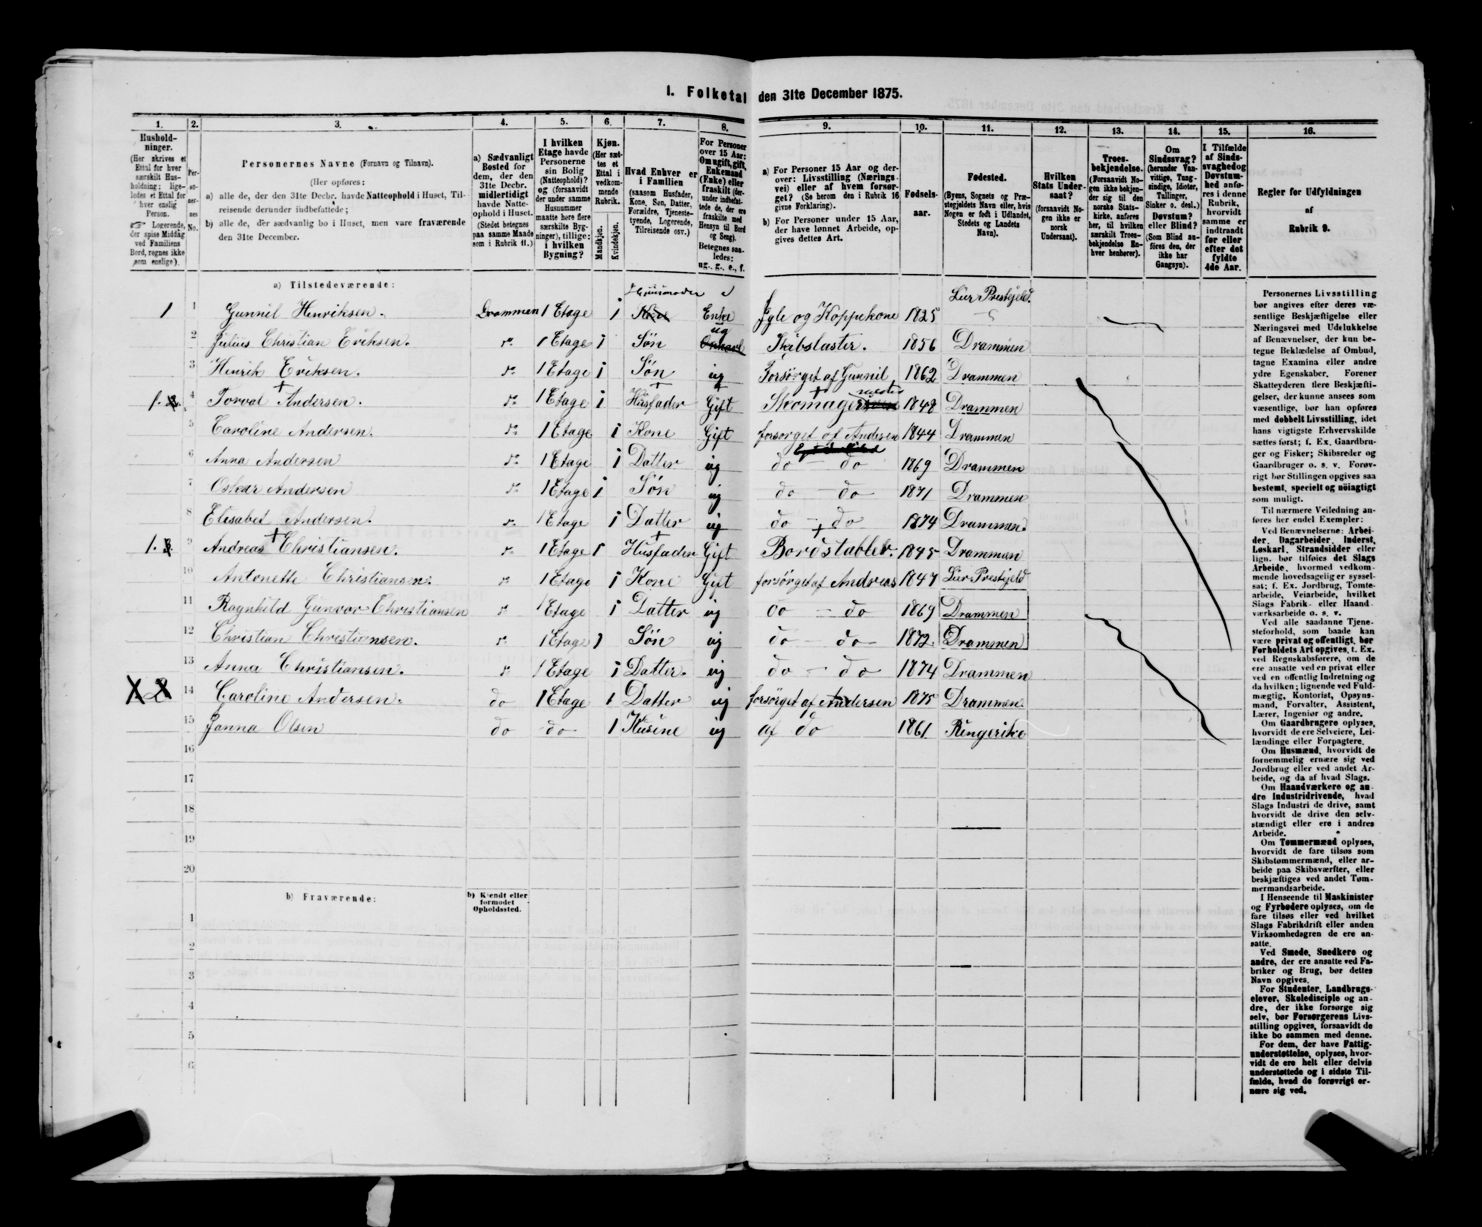 I. Folketal den 31te December 1875.
1. 2. 3. 4. 5. 6. 7. 8. 9. 10. 11. 12. 13. 14. 15. 16.
Hushold-
ninger.
(Her skrives et
Ettal for hver
særskilt Hus-
holdning; lige-
ledes et Ettal for
hver enslig
Person.
☞ Logerende,
der spise Middag
ved Familiens
Bord, regnes ikke
som enslige).
Per-
so-
ner-
nes
No.
Personernes Navne (Fornavn og Tilnavn).
(Her opføres:
a) alle de, der den 31te Decbr. havde Natteophold i Huset, Til-
reisende derunder indbefattede;
b) alle de, der sædvanlig bo i Huset, men vare fraværende
den 31te December.
a) Sædvanligt
Bosted for
dem, der den
31te Decbr.
midlertidigt
havde Natte-
ophold i Huset.
(Stedet betegnes
paa samme Maade
som i Rubrik 11.)
I hvilken
Etage havde
Personerne
sin Bolig
(Natteophold)?
og (forsaavidt
der under samme
Husnummer
maatte høre flere
særskilte Byg-
ninger), tillige:
i hvilken
Bygning?
Kjøn.
(Her sæt-
tes et
Ettal i
vedkom-
mende
Rubrik.
Mandkjøn.
Kvindekjøn.
Hvad Enhver er
i Familien
(saasom Husfader,
Kone, Søn, Datter,
Forældre, Tjeneste-
tyende, Logerende,
Tilreisende osv.)
For Personer
over 15 Aar:
Om ugift, gift,
Enkemand
(Enke) eller
fraskilt (der-
under indbefat-
tede de, der ere
fraskilte med
Hensyn til Bord
og Seng).
Betegnes saa-
ledes:
ug., g., e., f.
a) For Personer 15 Aar og der-
over: Livsstilling (Nærings-
vei) eller af hvem forsør-
get? (Se herom den i Rubrik 16
givne Forklaring).
b) For Personer under 15 Aar,
der have lønnet Arbeide, op-
gives dettes Art.
Fødsels-
aar.
Fødested.
(Byens, Sognets og Præ-
stegjeldets Navn eller, hvis
Nogen er født i Udlandet,
Stedets og Landets
Navn).
Hvilken
Stats Under-
saat?
(forsaavidt No-
gen ikke er
norsk
Undersaat).
Troes-
bekjendelse.
(Forsaavidt No-
gen ikke bekjen-
der sig til den
norske Stats-
kirke, anføres
her, til hvilken
særskilt Troes-
bekjendelse En-
hver henhører).
Om
Sindssvag?
(herunder Van-
vittige, Tung-
sindige, Idioter,
Tullinger,
Sinker o. desl.)
Døvstum?
eller Blind?
(Som Blind an-
føres den, der
ikke har
Gangsyn).
I Tilfælde
af Sinds-
svaghed og
Døvstum-
hed anfø-
res i denne
Rubrik,
hvorvidt
samme er
indtraadt
før eller
efter det
fyldte
4de Aar.
Regler for Udfyldningen
af
Rubrik 9.
a) Tilstedeværende:
1 1 Gunnil Henriksen. Drammen 1 Etage 1 Husmoder Enke Igle og Koppekone 1825 Lier Præstgjeld
2 Julius Christian Eriksen. do 1 Etage 1 Søn ug Skibslaster. 1856 Drammen
3 Henrik Eriksen. do 1 Etage 1 Søn ug Forsørget af Gunnil 1862 Drammen
1. 4 Torval Andersen. do 1 Etage 1 Husfader Gift Skomager 1848 Drammen
5 Caroline Andersen. do 1 Etage 1 Kone Gift forsørget af Andersen 1844 Drammen
6 Anna Andersen do 1 Etage 1 Datter ug do - do 1869 Drammen
7 Oskar Andersen do 1 Etage 1 Søn ug do - do 1871 Drammen
8 Elisabet Andersen. do 1 Etage 1 Datter ug do - do 1874 Drammen.
1. 9 Andreas Christiansen. do 1 Etage 1 Husfader Gift Bordstabler. 1845 Drammen
10 Antonette Christiansen. do 1 Etage 1 Kone Gift forsørget af Andreas 1847 Lier Prestgjeld
11 Ragnhild Gunvor Christiansen do 1 Etage 1 Datter ug do - do 1869 Drammen
12 Christian Christiansen. do 1 Etage 1 Søn ug do - do 1872 Drammen
13 Anna Christiansen. do 1 Etage 1 Datter. ug do - do 1874 Drammen
14 Caroline Andersen. do 1 Etage 1 Datter ug forsørget af Andersen 1875 Drammen.
15 Janna Olsen do do 1 Kusine ug af do 1861 Ringerike
16
17
18
19
20
b) Fraværende:
b) Kjendt eller
formodet
Opholdssted.
1
2
3
4
5
6
Personernes Livsstilling
bør angives efter deres væ-
sentlige Beskjæftigelse eller
Næringsvei med Udelukkelse
af Benævnelser, der kun be-
tegne Beklædelse af Ombud,
tagne Examina eller andre
ydre Egenskaber. Forener
Skatteyderen flere Beskjæfti-
gelser, der kunne ansees som
væsentlige, bør han opføres
med dobbelt Livsstilling, idet
hans vigtigste Erhvervskilde
sættes først; f. Ex. Gaardbru-
ger og Fisker; Skibsreder og
Gaardbruger o. s. v. Forøv-
rigt bør Stillingen opgives saa
bestemt, specielt og nöiagtigt
som muligt.
Til nærmere Veiledning an-
føres her endel Exempler:
Ved Benævnelserne: Arbei-
der, Dagarbeider, Inderst,
Løskarl, Strandsidder eller
lign. bør tilføies det Slags
Arbeide, hvormed vedkom-
mende hovedsagelig er syssel-
sat; f. Ex. Jordbrug, Tomte-
arbeide, Veiarbeide, hvilket
Slags Fabrik- eller Haand-
værksarbeide o. s. v.
Ved alle saadanne Tjene-
steforhold, som baade kan
være privat og offentligt, bør
Forholdets Art opgives, t. Ex.
ved Regnskabsførere, om de
ere ansatte ved en privat eller
ved en offentlig Indretning og
da hvilken; lignende ved Fuld-
mægtig, Kontorist, Opsyns-
mand, Forvalter, Assistent,
Lærer, Ingeniør og andre.
Om Gaardbrugere oplyses,
hvorvidt de ere Selveiere, Lei-
lændinge eller Forpagtere.
Om Husmænd, hvorvidt de
fornemmelig ernære sig ved
Jordbrug eller ved andet Ar-
beide, og da af hvad Slags.
Om Haandværkere og an-
dre Industridrivende, hvad
Slags Industri de drive, samt
hvorvidt de drive den selv-
stændigt eller ere i andres
Arbeide.
Om Tømmermænd oplyses,
hvorvidt de fare tilsøs som
Skibstømmermænd, eller ar-
beide paa Skibsværfter, eller
beskjæftiges ved andet Tøm-
mermandsarbeide.
I Henseende til Maskinister
og Fyrbødere oplyses, om de
fare tilsøs eller ved hvilket
Slags Fabrikdrift eller anden
Virksomhedsgren de ere an-
satte.
Ved Smede, Snedkere og
andre, der ere ansatte ved Fa-
briker og Brug, bør dettes
Navn opgives.
For Studenter, Landbrugs-
elever, Skoledisciple og an-
dre, der ikke forsørge sig
selv, bør Forsørgerens Livs-
stilling opgives, forsaavidt de
ikke bo sammen med denne.
For dem, der have Fattig-
understøttelse, oplyses, hvor-
vidt de ere helt eller delvis
understøttede og i sidste Til-
fælde, hvad de forøvrigt er-
nære sig ved.